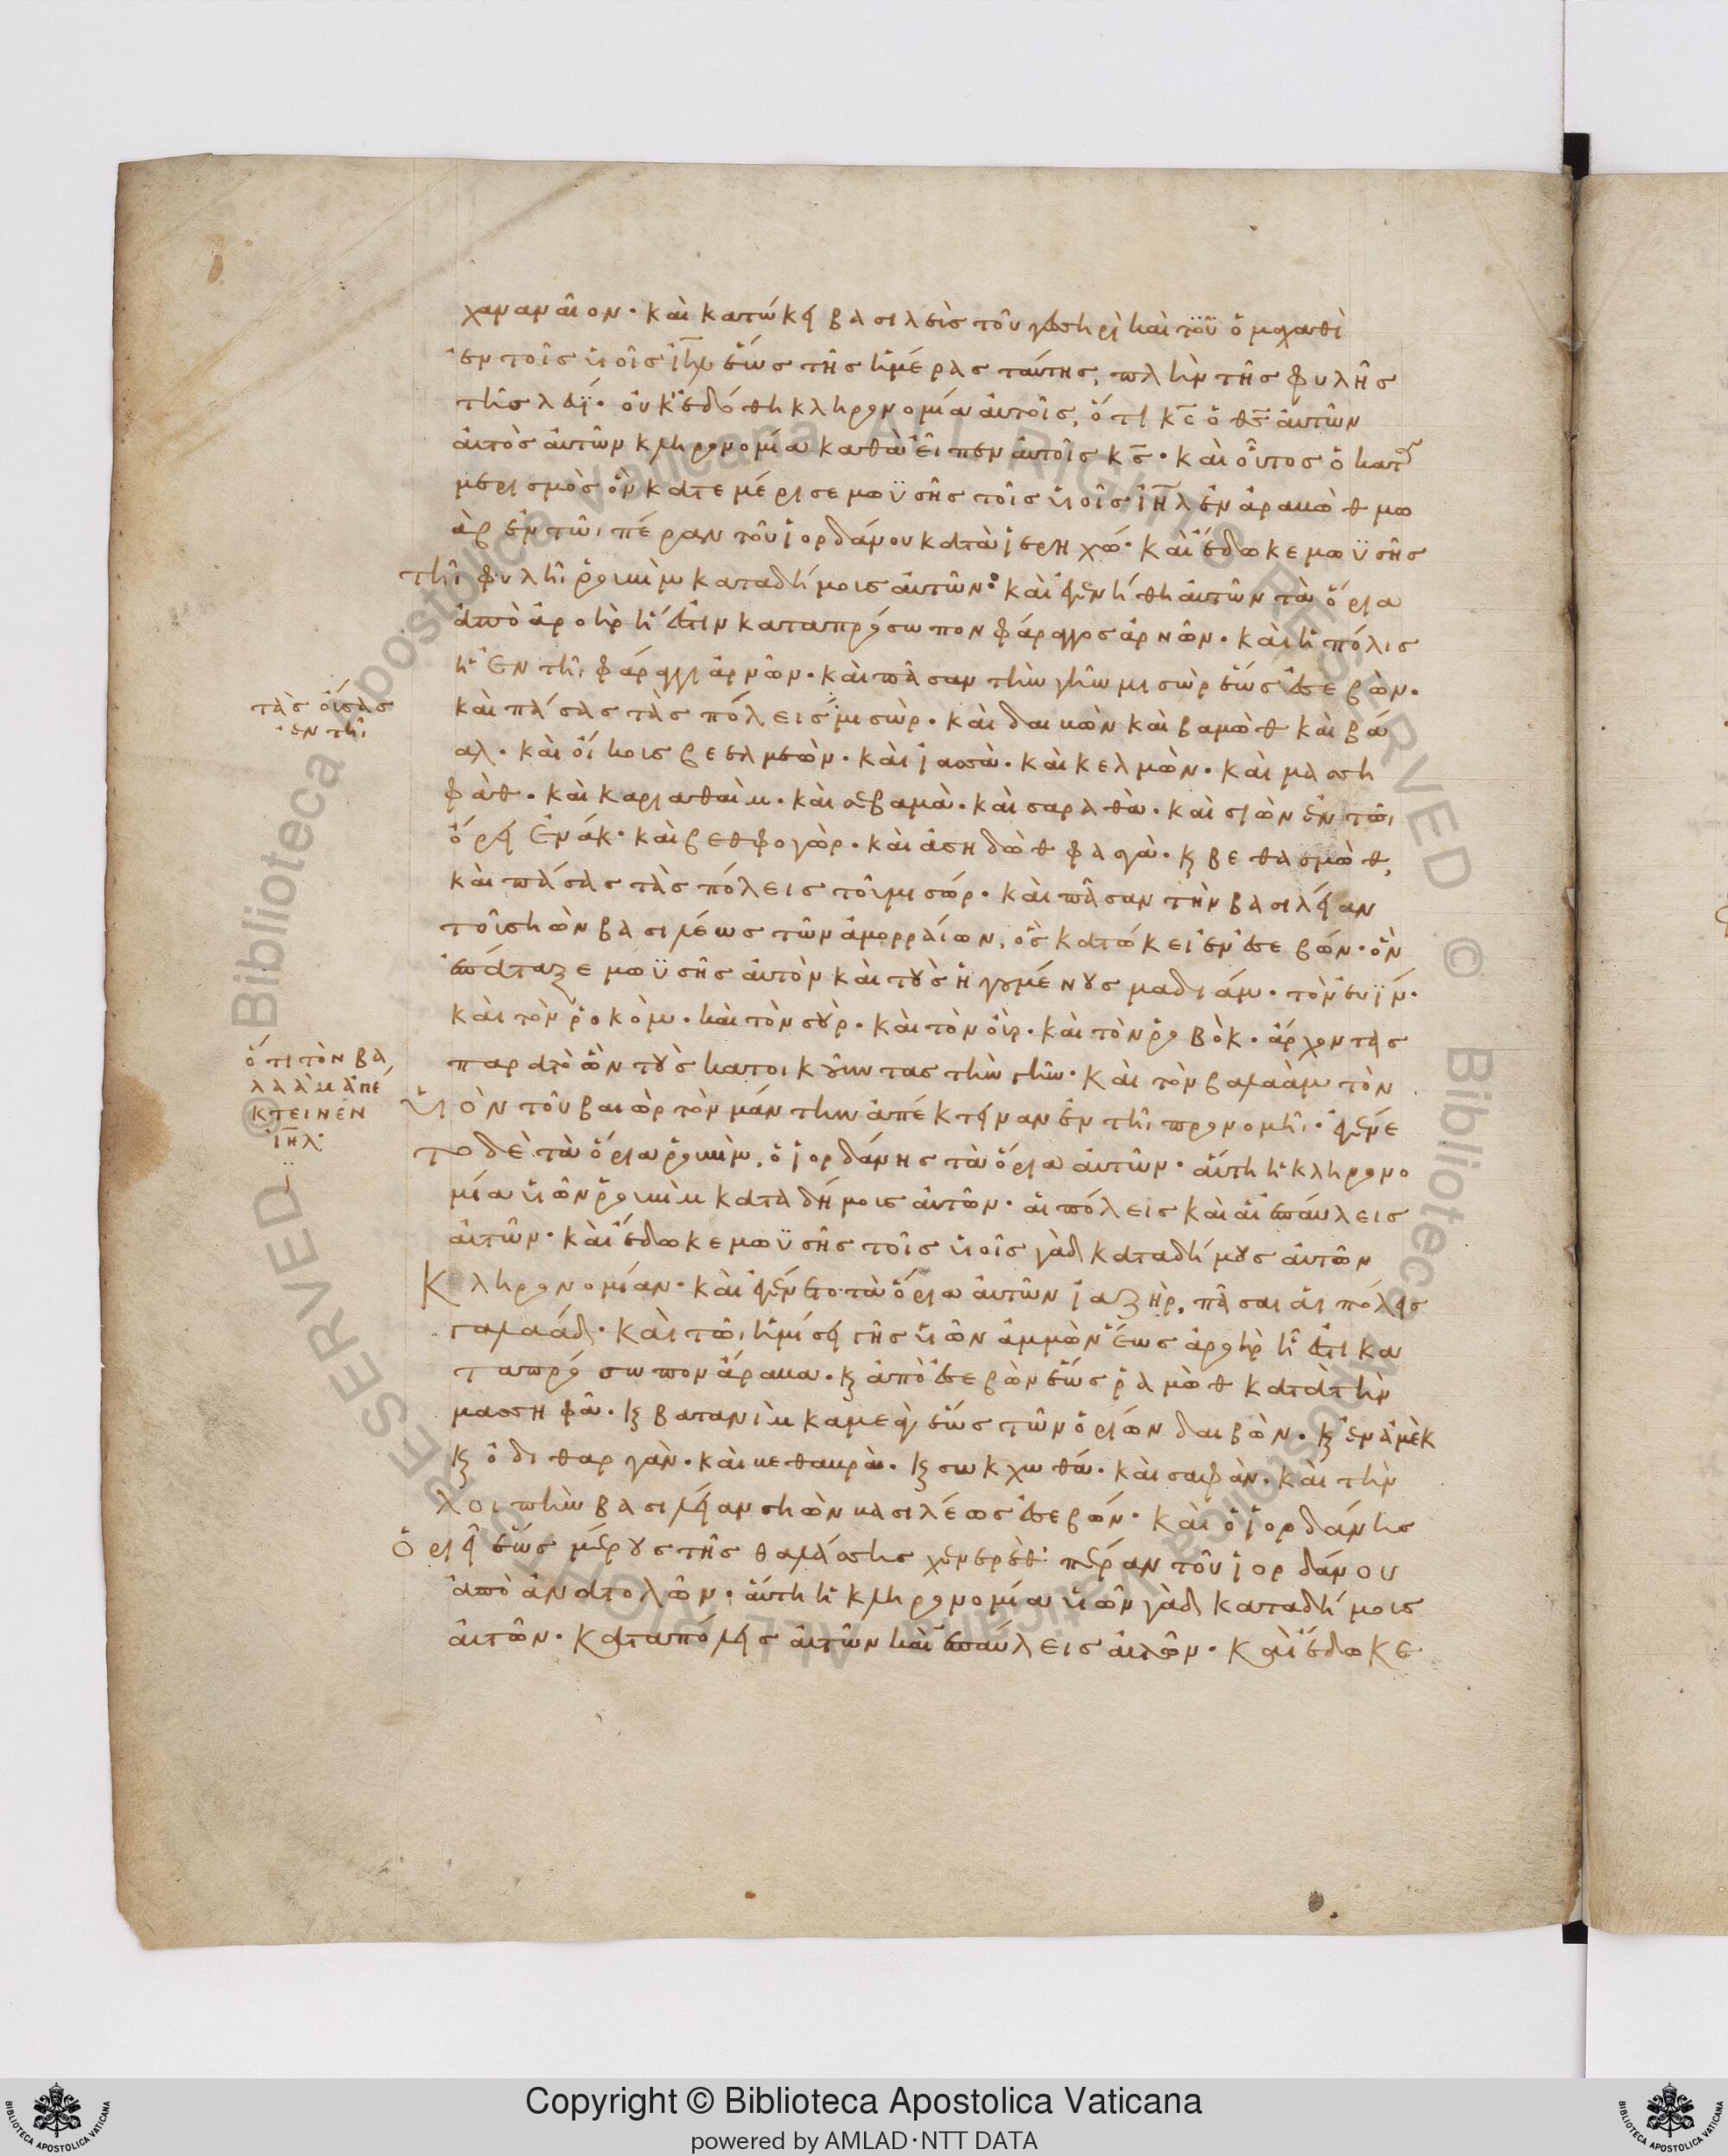 χαναναῖον· καὶ κατώκει βασιλεὺς τοῦ γεσηρὶ καὶ τοῦ ὁμαχαθὶ
ἐν τοῖς υἱοῖς ἰηλ ἕως τῆς ἡμέρας ταύτης, πλὴν τῆς φυλῆς
τῆς λευϊ· οὐκ ἐδόθη κληρονομία αὐτοῖς, ὅτι κς ὁ θς αὐτῶν
αὐτὸς αὐτῶν κληρονομία καθὰ εἶπεν αὐτοῖς κς· καὶ οὗτος ὁ κατα
μερισμὸς ὃν κατεμέρισε μωϋσῆς τοῖς υἱοῖς ἰηλ ἐν ἀραβὼθ μω
ὰβ ἐν τῶι πέραν τοῦ ἰορδάνου κατὰ ἱεριχώ· καὶ ἔδωκε μωϋσῆς
τῆι φυλῆι ῥουβὶμ κατα δήμους αὐτῶν· καὶ ἐγενήθη αὐτῶν τὰ ὅρια
ἀπὸ ἀροὴρ ἥ ἐστιν κατα πρόσωπον φάραγγος ἀρνῶν· καὶ ἡ πόλις
ἡ ἐν τῆι φάραγγι ἀρνῶν· καὶ πᾶσαν τὴν γῆν μισὼρ ἕως ἐσεβὼν·
τὰς οὔσας
ἐν τῆι
καὶ πάσας τὰς πόλεις μισὼρ· καὶ δαιβὼν καὶ βαμὼθ καὶ βά
αλ· καὶ οἴκους βεελμεὼν· καὶ ἰασσὰ· καὶ κελμὼν· καὶ μαση
φὰθ· καὶ καριαθαὶμ· καὶ σεβαμὰ· καὶ σαραθὰ· καὶ σιὼν ἐν τῶι
ὄρει ἐνάκ· καὶ βεθφογὼρ· καὶ ἀσηδὼθ φασγὰ· κ βεθασμὼθ,
καὶ πάσας τὰς πόλεις τοῦ μισώρ· καὶ πᾶσαν τὴν βασιλείαν
τοῦ σηὼν βασιλέως τῶν ἀμορραίων, ὃς κατώκει ἐν ἐσεβών· ὃν
ἐπάταξε μωϋσῆς αὐτὸν καὶ τοὺς ἡγουμένους μαδιάμ· τὸν ευϊν·
καὶ τὸν ῥοκὸμ· καὶ τὸν σοὺρ· καὶ τὸν οὒρ· καὶ τὸν ῥοβὸκ· ἄρχοντας
παρα τὸ σηὼν τοὺς κατοικοῦντας τὴν γῆν· καὶ τὸν βαλαὰμ τὸν
ὅτι τὸν βα
λαὰμ ἀπέ
κτεινεν
ἰηλ
υἱὸν τοῦ βαιὼρ τὸν μάντην ἀπέκτειναν ἐν τῆι προνομῆι· ἐγένε
το δὲ τὰ ὅρια ῥουβὶμ, ὁ ἰορδάνης τὰ ὅρια αὐτῶν· αὕτη ἡ κληρονο
μία υἱῶν ῥουβὶμ κατα δήμους αὐτῶν· αἱ πόλεις καὶ αἱ ἐπαύλεις
αὐτῶν· καὶ ἔδωκε μωϋσῆς τοῖς υἱοῖς γὰδ κατα δήμους αὐτῶν
Κληρονομίαν· καὶ ἐγένετο τὰ ὅρια αὐτῶν ἰαζὴρ, πᾶσαι αἱ πόλεις
γαλαάδ· καὶ τῶι ἡμίσει γῆς υἱῶν ἀμμὼν ἕως ἀροὴρ ἥ ἐστι κα
τα πρόσωπον ἄραβα· κ ἀπὸ ἐσεβὼν ἕως ῥαμὼθ κατὰ τὴν
μασσηφᾶ· κ βατανὶμ καμεὶν ἕως τῶν ὁρίων δαιβὼν· κ ἐν ἀμὲκ
κ ὀδιθαργὰν· καὶ βεθαμρὰ· κ σωκχωθά· καὶ σαφὰν· καὶ τὴν
λοιπὴν βασιλείαν σηὼν βασιλέως ἐσεβών· καὶ ὁ ἰορδάνης
ὁριεῖ ἕως μέρους τῆς θαλάσσης χενερέθ· πέραν τοῦ ἰορδάνου
ἀπὸ ἀνατολῶν· αὕτη ἡ κληρονομία υἱῶν γὰδ κατα δήμους
αὐτῶν· κατα πόλεις αὐτῶν καὶ ἐπαύλεις αὐτῶν· καὶ ἔδωκε
Copyright © Biblioteca Apostolica Vaticana
powered by AMLAD·NTT DATA